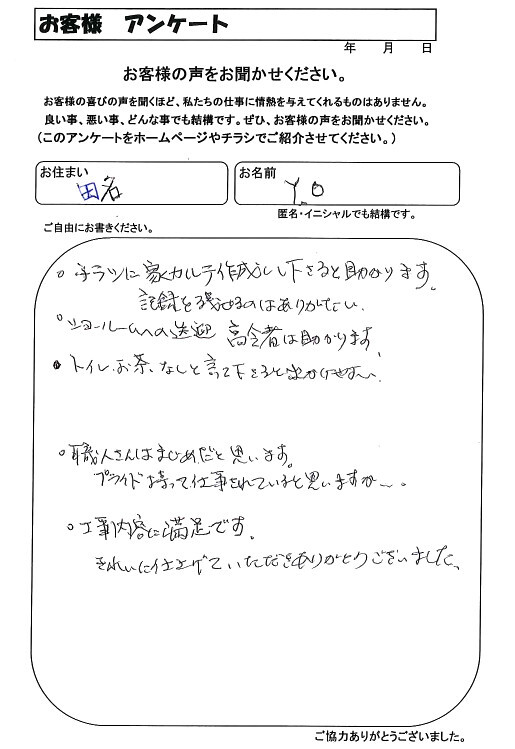 お客様 アンケート
年 月 日
お客様の声をお聞かせください。
お客様の喜びの声を聞くほど、私たちの仕事に情熱を与えてくれるものはありません。
良い事、悪い事、どんな事でも結構です。ぜひ、お客様の声をお聞かせください。
（このアンケートをホームページやチラシでご紹介させてください。）
お住まい
田名
お名前
Y.O
匿名・イニシャルでも結構です。
ご自由にお書きください。
○チラシに家カルテ作成 下さると助かります。
記録を残せるのはありがたい。
○ショールームへの送迎 高令者は助かります
●トイレ、お茶、なしと言って下さると
○職人さんはまじめだと思います。
プライド持って仕事されていると思いますが〜。
○工事内容に満足です。
きれいに仕上げていただきありがとうございました。
ご協力ありがとうございました。